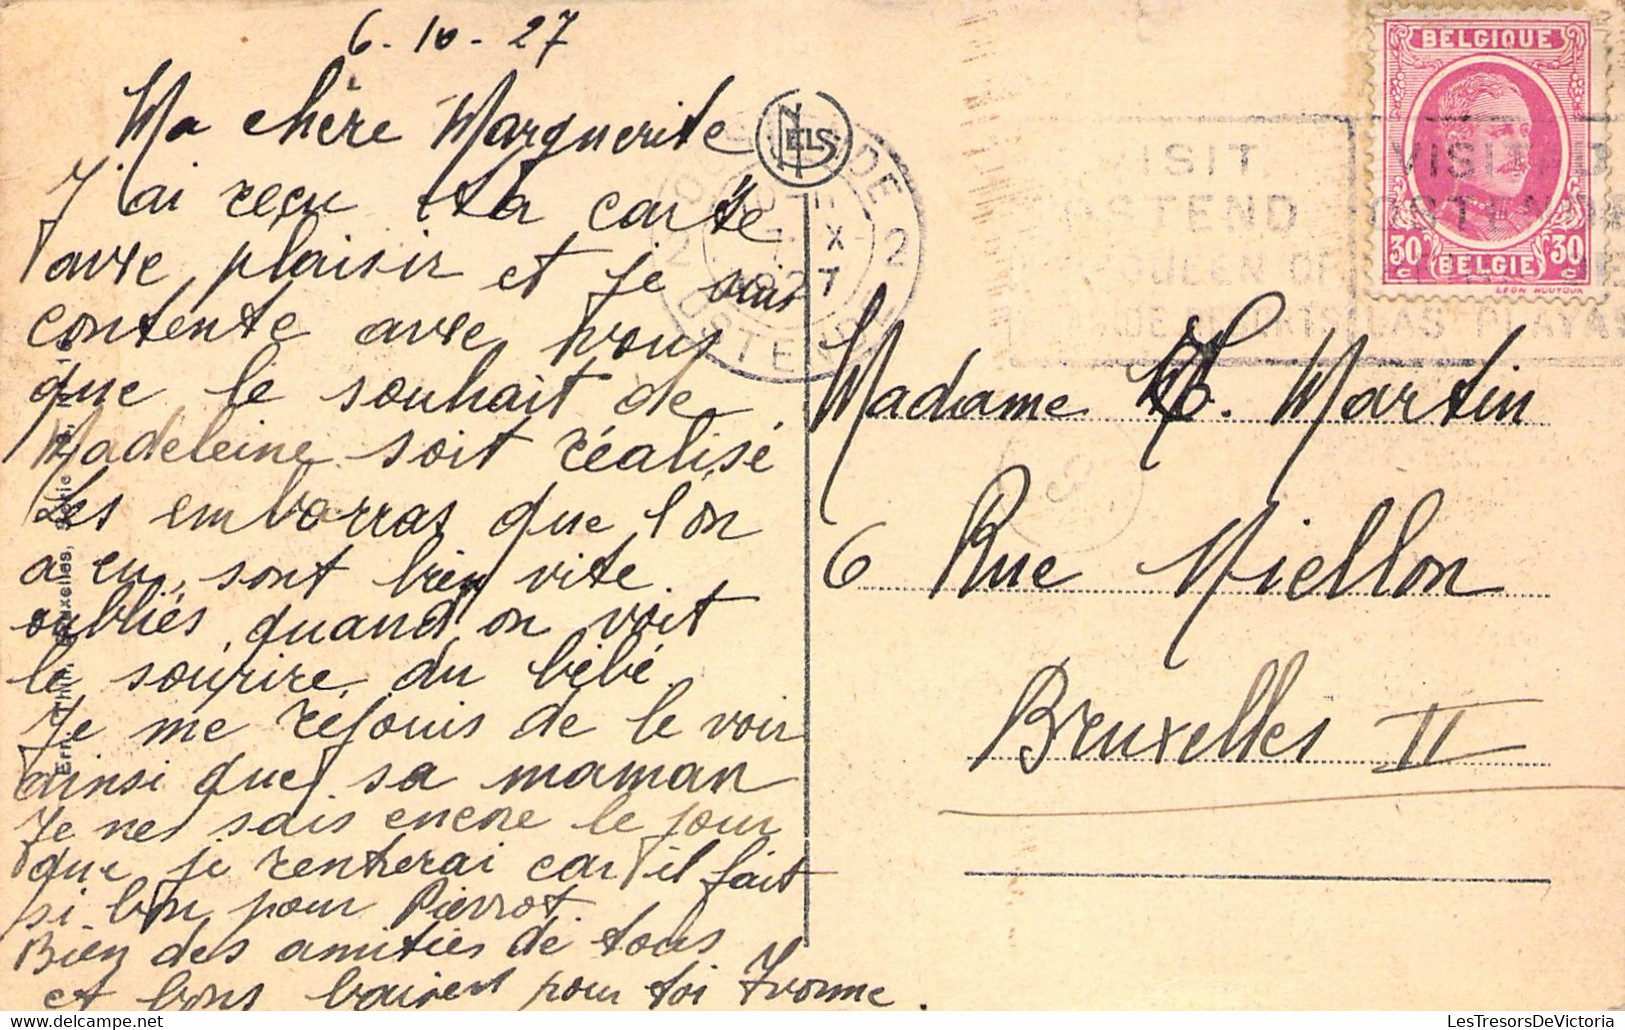 6-10-27
Ma chère Marguerite
J'ai reçu ta carte
avec plaisir et je suis
contente avec vous
que le souhait de
Madeleine soit réalisé
Les embarras que l'on
a eu, sont bien vite
oubliés quand on voit
le sourire du bébé.
Je me réjouis de le voir
ainsi que sa maman
Je ne sais encore le jour
que je renterai car il fait
si bon pour Pierrot
Bien des amitiés de tous
et bons baisers pour toi Yvonne.
NELS
Ern. Thill, Bruxelles,
OOSTENDE
2 2
X
1927
OSTENDE
VISIT
OSTEND
QUEEN OF
VISITAD
OSTENDE
LAS PLAYAS
BELGIQUE
30c 30c
BELGIE
LEON HOUYOUX
Madame Martin
6 Rue Niellon
Bruxelles II
LesTresorsDeVictoria.com